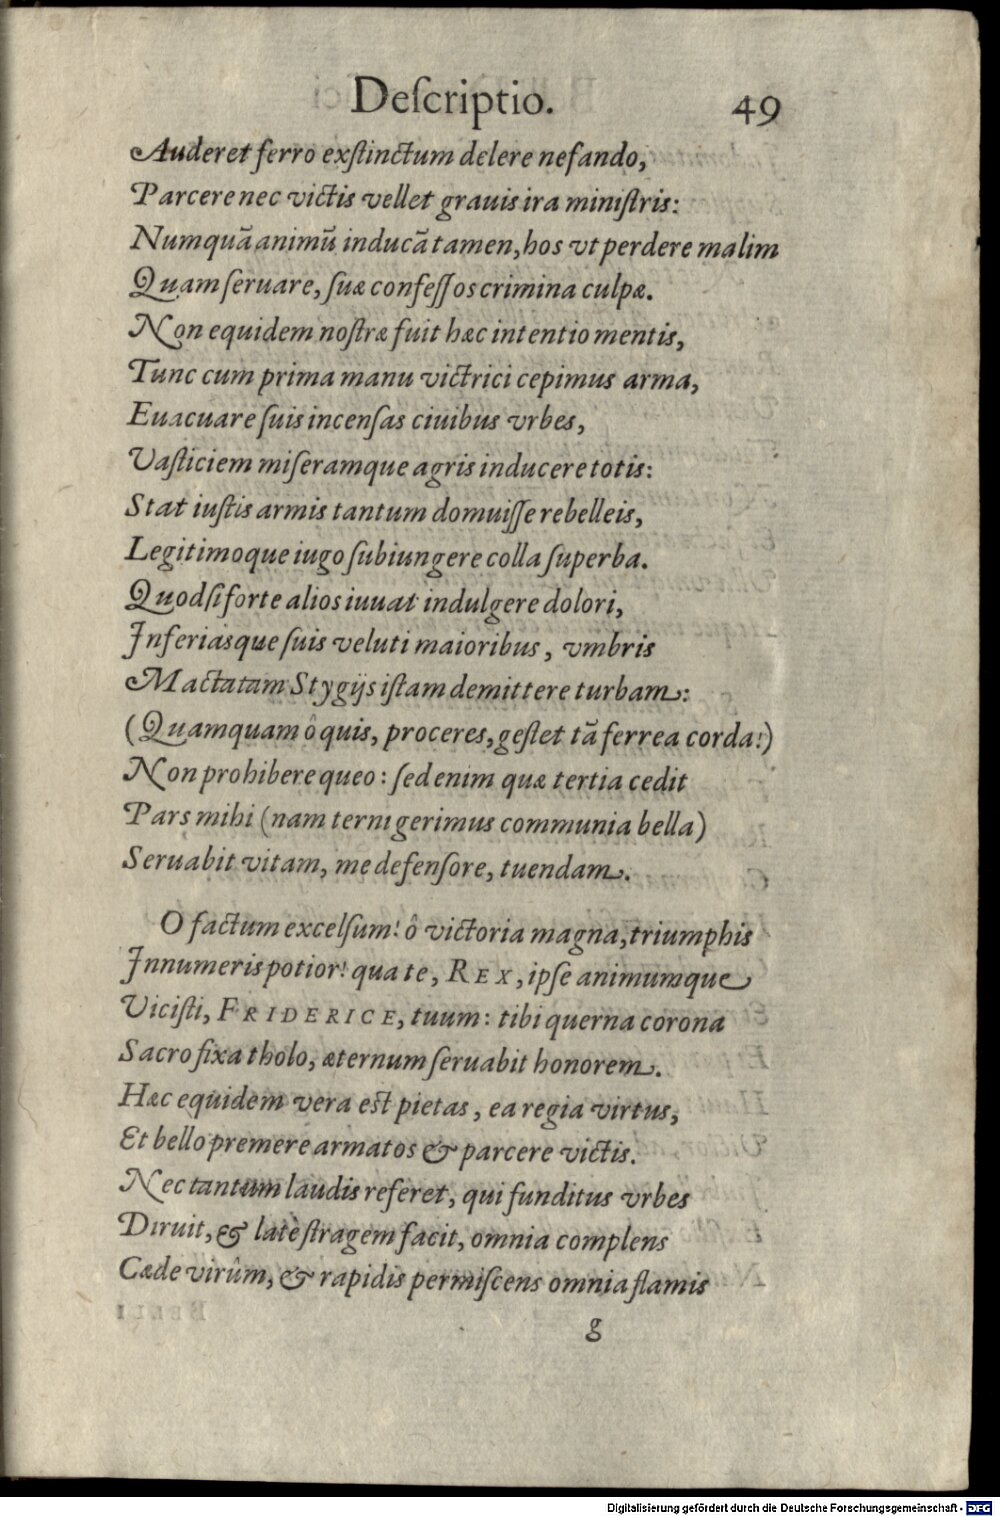 Deſcriptio. 49
Auderet ferro exſtinctum delere nefando,
Parcere nec victis vellet grauis ira miniſtris:
Numquā animū inducā tamen, hos vt perdere malim
Quam ſeruare, ſuæ confeſſos crimina culpæ.
Non equidem noſtræ fuit hæc intentio mentis,
Tunc cum prima manu victrici cepimus arma,
Euacuare ſuis incenſas ciuibus vrbes,
Vaſticiem miſeramque agris inducere totis:
Stat iuſtis armis tantum domuiſſe rebelleis,
Legitimoque iugo ſubiungere colla ſuperba.
Quod ſi forte alios iuuat indulgere dolori,
Inferiasque ſuis veluti maioribus, vmbris
Mactatam Stygijs iſtam demittere turbam:
(Quamquam ô quis, proceres, geſtet tā ferrea corda!)
Non prohibere queo: ſed enim quæ tertia cedit
Pars mihi (nam terni gerimus communia bella)
Seruabit vitam, me defenſore, tuendam.
O factum excelſum! ô victoria magna, triumphis
Innumeris potior! qua te, REX, ipſe animumque
Viciſti, FRIDERICE, tuum: tibi querna corona
Sacro fixa tholo, æternum ſeruabit honorem.
Hæc equidem vera est pietas, ea regia virtus,
Et bello premere armatos & parcere victis.
Nec tantum laudis referet, qui funditus vrbes
Diruit, & latè ſtragem facit, omnia complens
Cæde virûm, & rapidis permiſcens omnia flamis
g
Digitalisierung gefördert durch die Deutsche Forschungsgemeinschaft - DFG